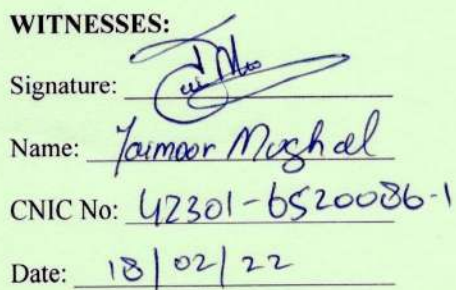 WITNESSES:
Signature:
Name: Taimoor Mughal
CNIC No: 42301-6520086-1
Date: 18/02/22